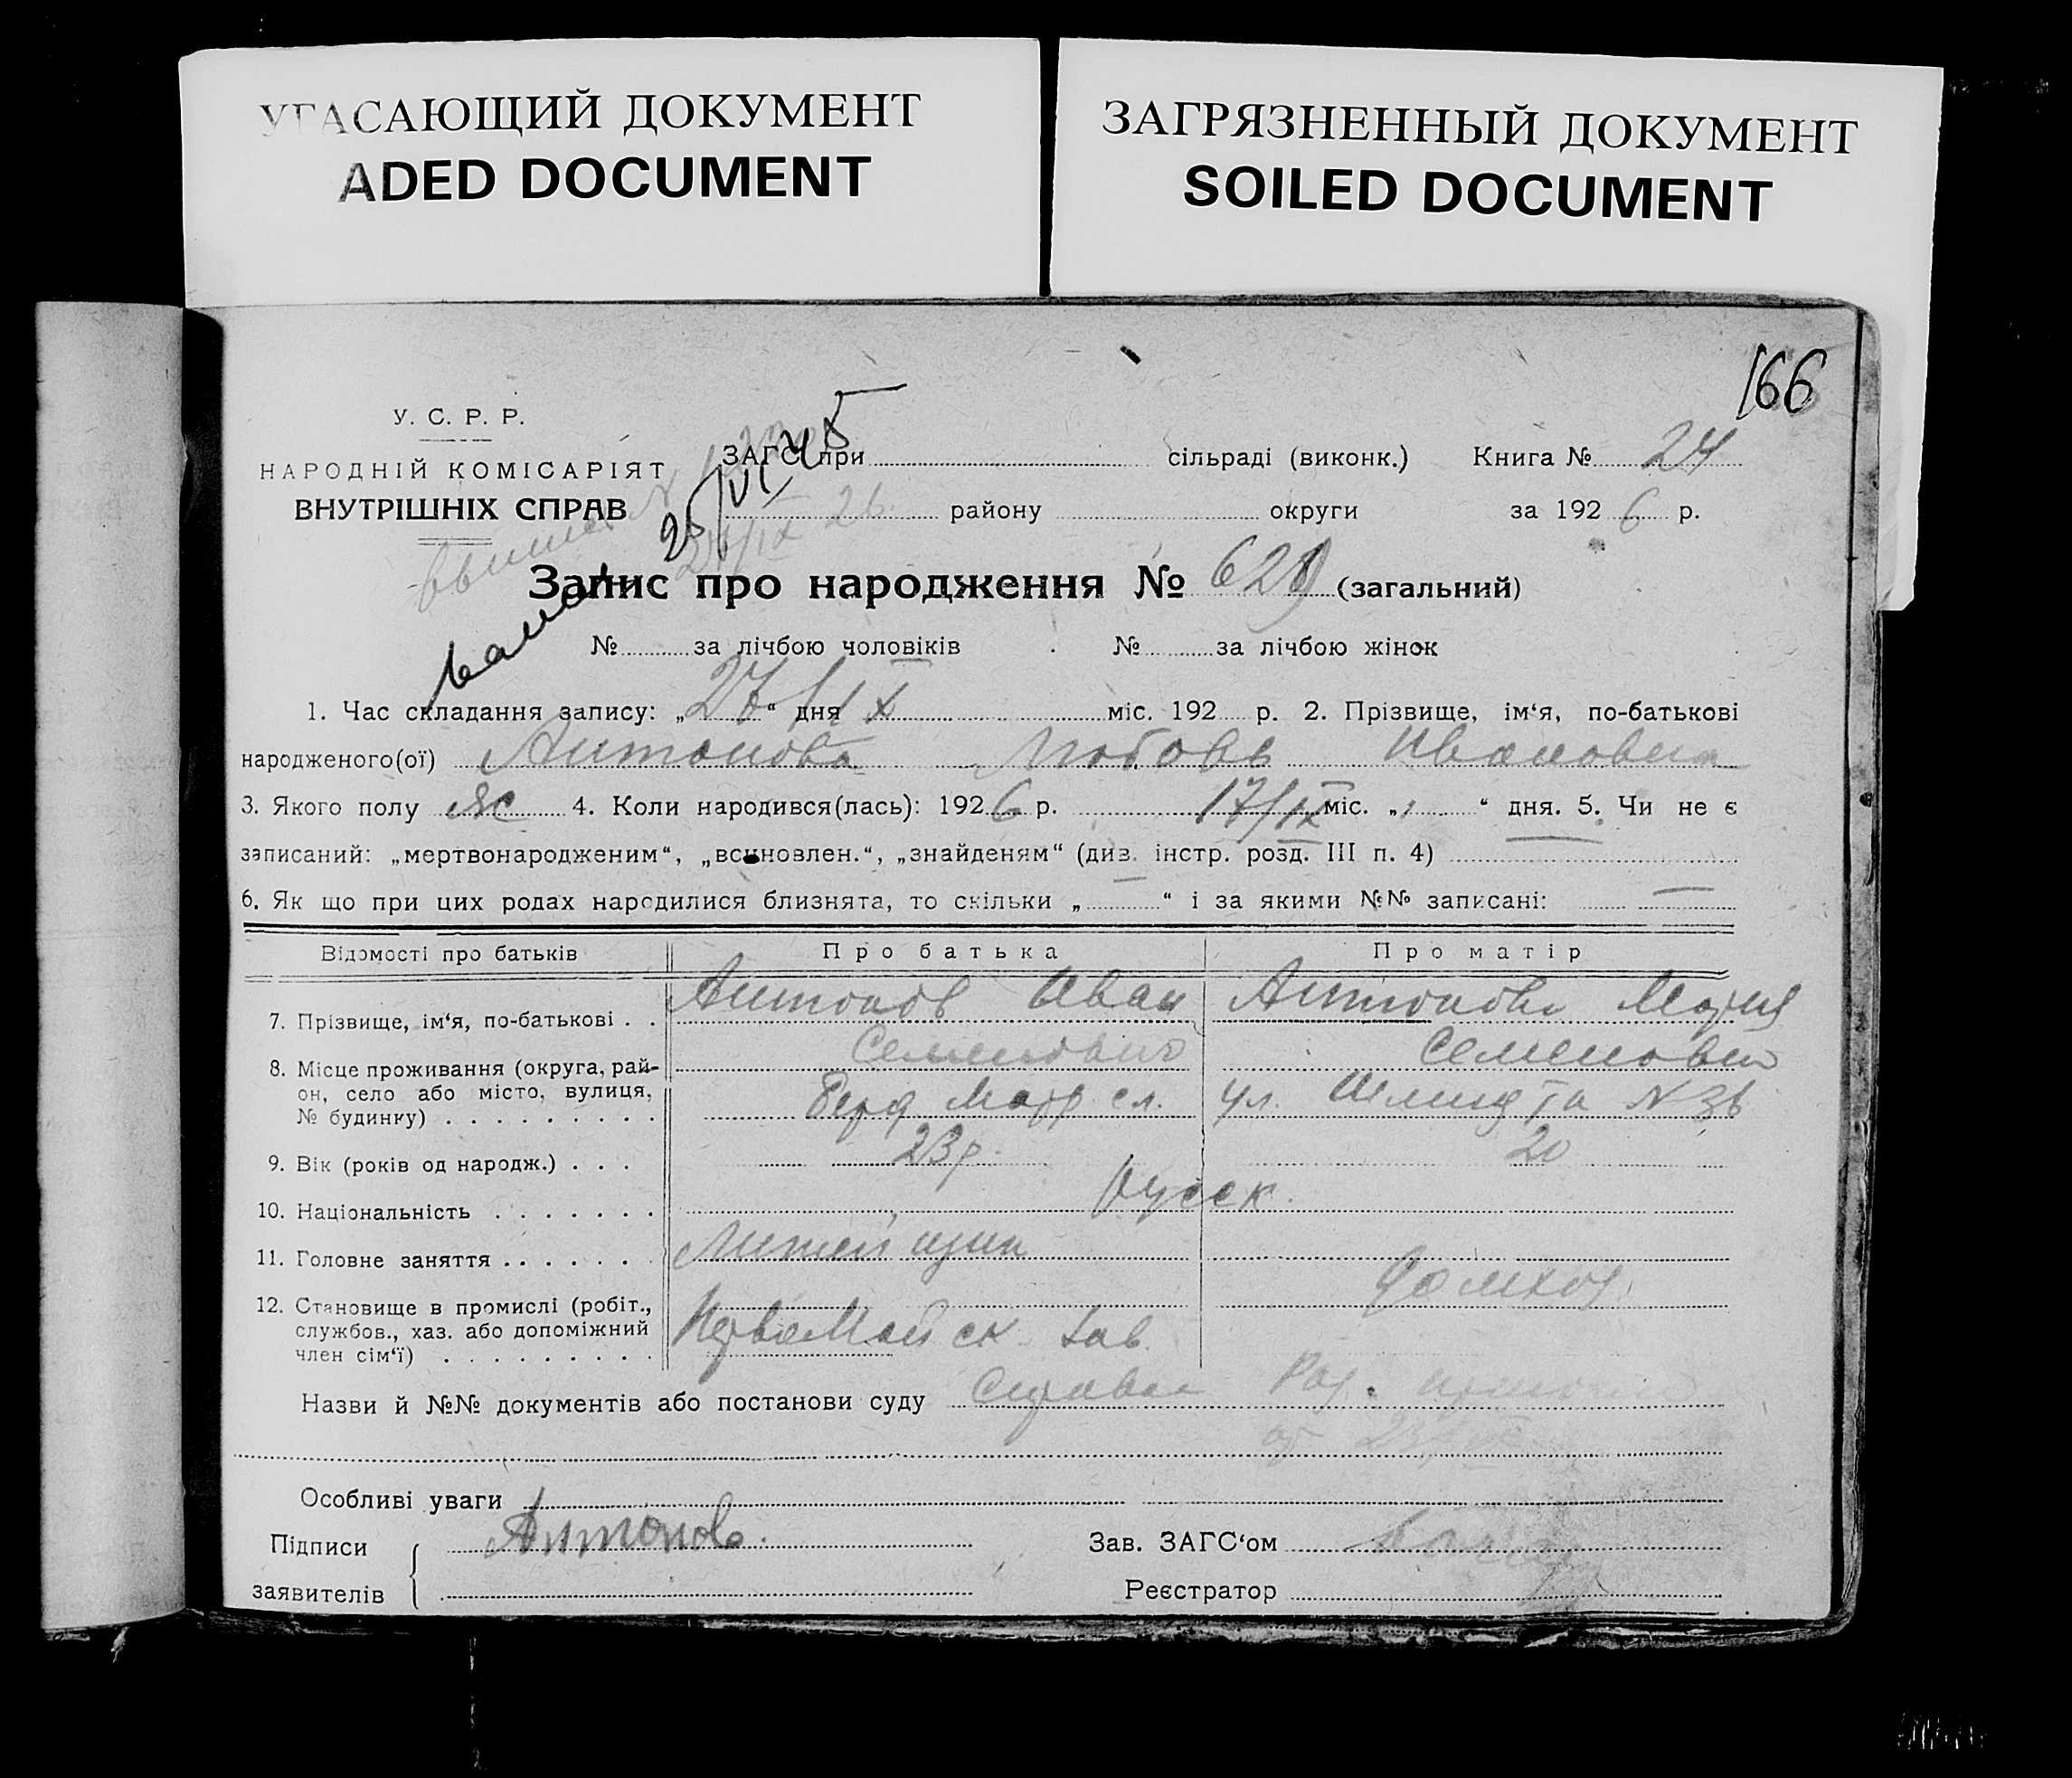 УГАСАЮЩИЙ ДОКУМЕНТ
ADED DOCUMENT
ЗАГРЯЗНЕННЫЙ ДОКУМЕНТ
SOILED DOCUMENT
166
У. С. Р. Р.
НАРОДНІЙ КОМІСАРІЯТ
ВНУТРІШНІХ СПРАВ
ЗАГС при сільраді (виконк.) Книга № 24
району округи за 1926 р.
25/VI 45
Запис про народження № 629 (загальний)
№ за лічбою чоловіків № за лічбою жінок
1. Час складання запису: „27“ дня IX міс. 192 р. 2. Прізвище, ім‘я, по-батькові
народженого(ої) Антонова Любовь Ивановна
3. Якого полу жс 4. Коли народився(лась): 1926 р. 17/IX міс. „ “ дня. 5. Чи не є
записаний: „мертвонародженим“, „всиновлен.“, „знайденям“ (див. інстр. розд. III п. 4)
6. Як що при цих родах народилися близнята, то скільки „ “ і за якими №№ записані: —
Відомості про батьків Про батька Про матір
7. Прізвище, ім‘я, по-батькові . . Антонов Иван Антонова Мария
Семенович Семеновна
8. Місце проживання (округа, рай-
он, село або місто, вулиця,
№ будинку) . . . . . . . . . сл. ул. Шмидта №
9. Вік (років од народж.) . . . 23 р. 20
10. Національність . . . . . . . Русск.
11. Головне заняття . . . . . . Литейщик
Домхоз.
12. Становище в промислі (робіт.,
службов., хаз. або допоміжний
член сім‘ї) . . . . . . . . . ПервоМайск зав.
Назви й №№ документів або постанови суду Справка
Особливі уваги
Підписи Антонов. Зав. ЗАГС‘ом
заявителів Реєстратор